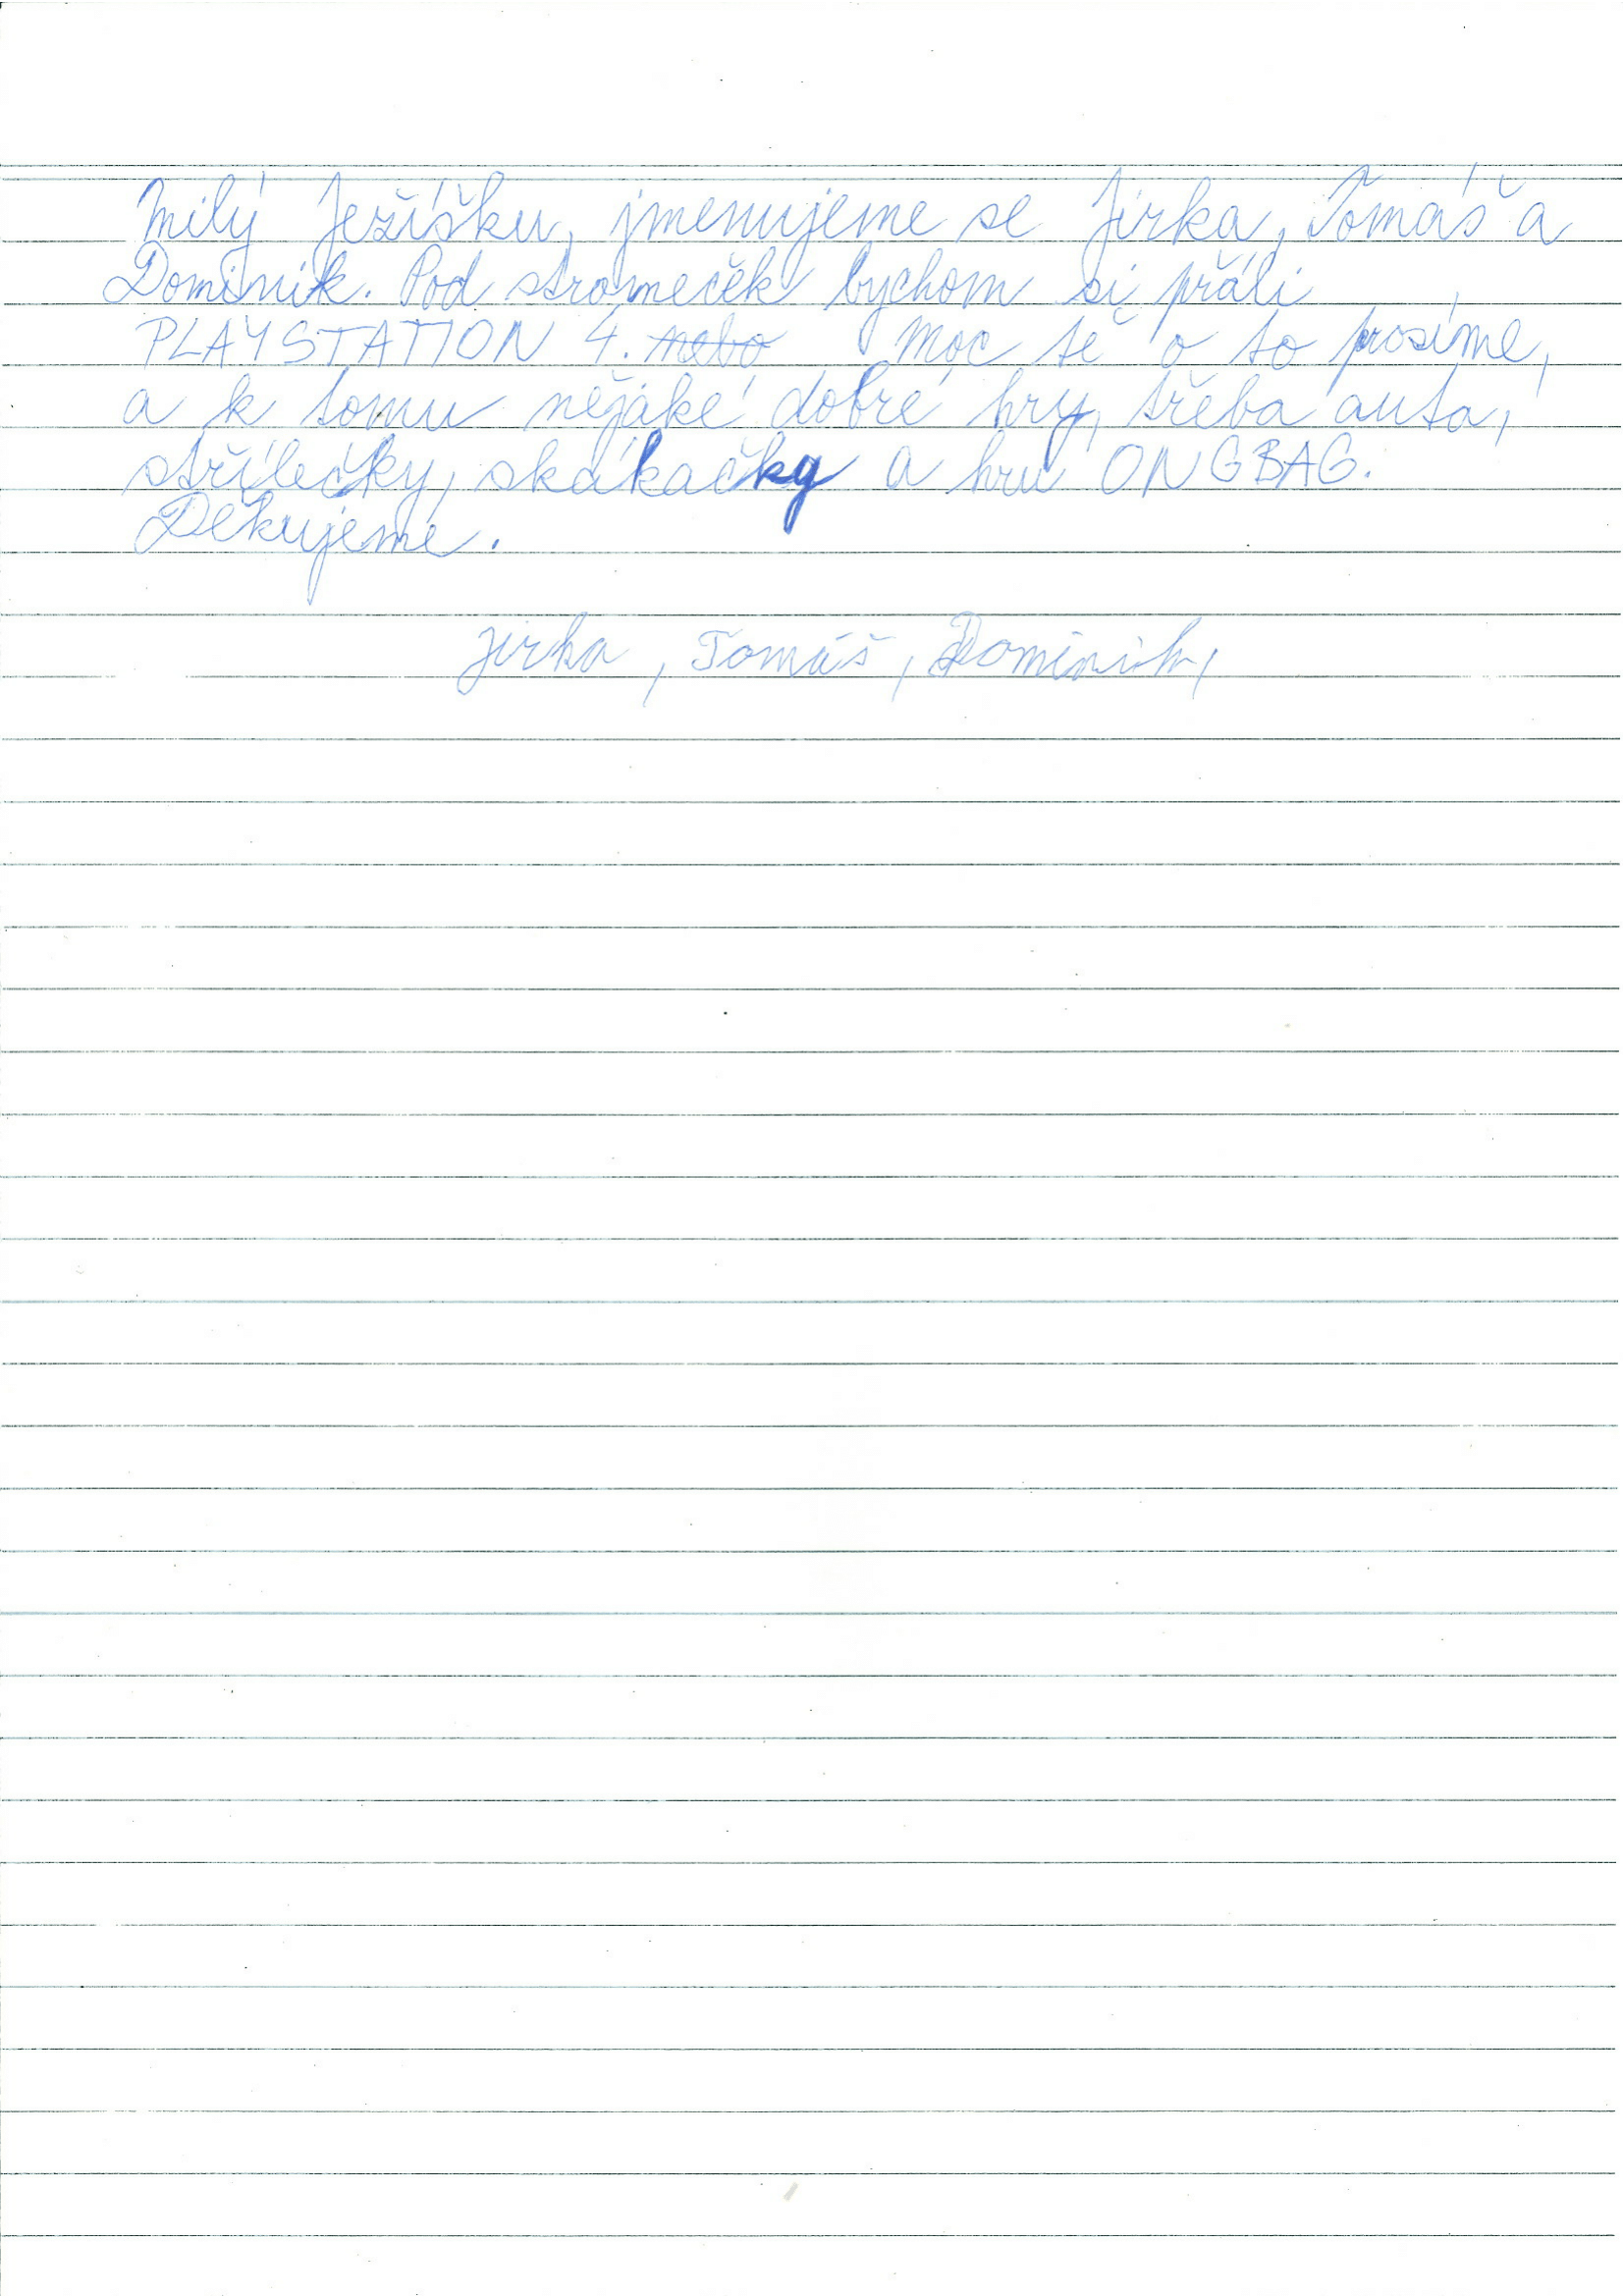 Milý Ježíšku, jmenujeme se Jirka, Tomáš a
Dominik. Pod stromeček bychom si přáli
PLAYSTATION 4. nebo Moc tě o to prosíme,
a k tomu nějaké dobré hry, třeba auta,
střílečky, skákačky a hru ONGBAG.
Děkujeme.
Jirka, Tomáš, Dominik,